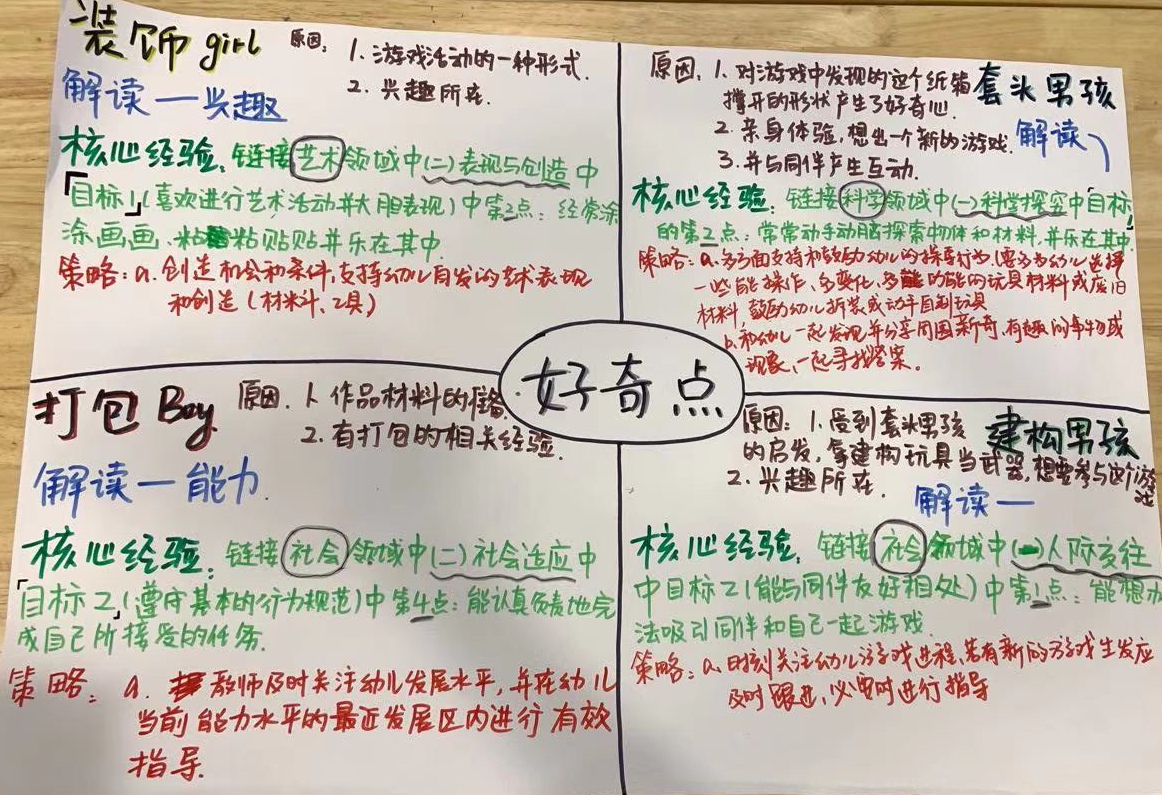 装饰girl
原因: 1.游戏活动的一种形式.
2. 兴趣所在.
解读—兴趣
核心经验: 链接艺术领域中(二)表现与创造中
「目标1」(喜欢进行艺术活动并大胆表现)中第2点: 经常涂
涂画画.粘粘贴贴并乐在其中.
策略: a. 创造机会和条件,支持幼儿自发的艺术表现
和创造(材料、工具)
原因. 1. 对游戏中发现的这个纸箱
撑开的形状产生了好奇心.
2. 亲身体验,想出一个新的游戏.
3. 并与同伴产生互动.
套头男孩
解读
核心经验: 链接科学领域中(一)科学探究中「目标」
的第2点: 常常动手动脑探索物体和材料.并乐在其中.
策略: a.多方面支持和鼓励幼儿的探索行为.(要多为幼儿选择
一些能操作、多变化、多功能的玩具材料或废旧
材料,鼓励幼儿拆装或动手自制玩具
b.和幼儿一起发现并分享周围新奇、有趣的事物或
现象、一起寻找答案。
好奇点
打包Boy
原因. 1. 作品材料的
2. 有打包的相关经验.
解读—能力.
核心经验: 链接社会领域中(二)社会适应中
「目标2」(遵守基本的行为规范)中第4点: 能认真负责地完
成自己所接受的任务.
策略: a. 教师及时关注幼儿发展水平,并在幼儿
当前能力水平的最近发展区内进行有效
指导.
原因: 1.受到套头男孩
的启发,拿建构玩具当武器,想要参与这个游戏
2. 兴趣所在.
建构男孩
解读—
核心经验: 链接社会领域中(一)人际交往
中目标2(能与同伴友好相处)中第1点: 能想办
法吸引同伴和自己一起游戏.
策略: a.时刻关注幼儿游戏进程,若有新的游戏生发应
及时跟进,必要时进行指导